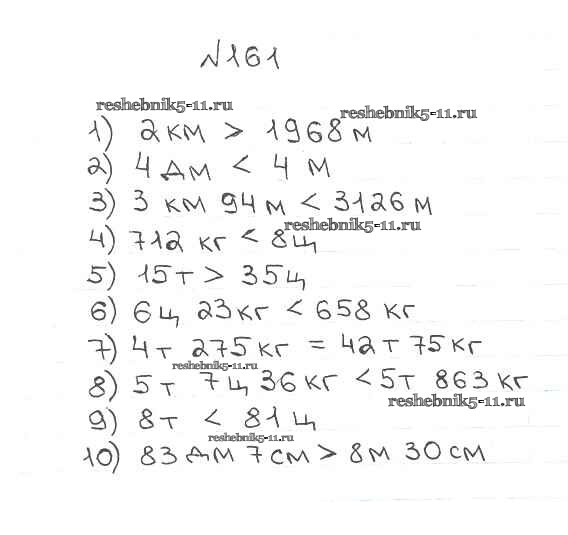 №161
reshebnik5-11.ru
reshebnik5-11.ru
1) 2 км > 1968 м
2) 4 дм < 4 м
3) 3 км 94 м < 3126 м
reshebnik5-11.ru
4) 712 кг < 8ц
5) 15т > 35ц
6) 6ц 23кг < 658 кг
7) 4т 275кг = 42т 75кг
reshebnik5-11.ru
8) 5т 7ц 36кг < 5т 863 кг
reshebnik5-11.ru
9) 8т < 81ц
reshebnik5-11.ru
10) 83 дм 7см > 8м 30см